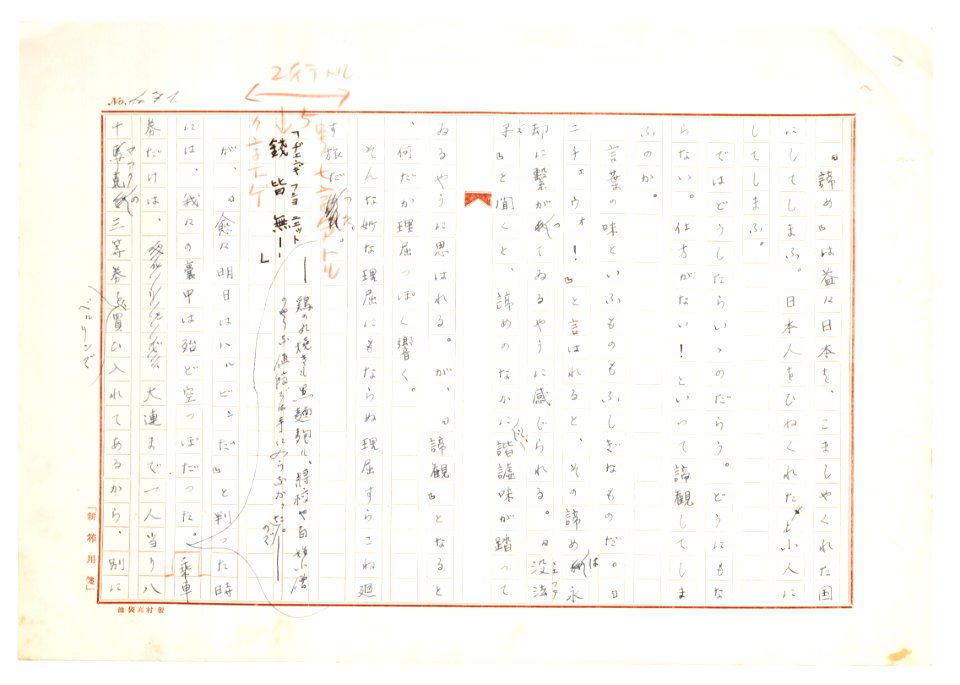 No. 
『諦め』は益々日本を、こましやくれた国
にしてしまふ。日本人をひねくれた小人に
してしまふ。
ではどうしたらいゝのだらう。どうにもな
らない。仕方がない！といって諦観してしま
ふのか。
言葉の味といふものもふしぎなものだ。『
ニチェウォ！』と言はれると、その諦めは永
却に繋がってゐるやうに感じられる。『没法
子』と聞くと、諦めのなかに諧謔味が踏って
ゐるやうに思はれる。が、『諦観』となると
、何だか理屈っぽく響く。
そんな妙な理屈にもならぬ理屈すらこね廻
す旅だった。
2行ドル
5号
「銭皆無ー」
チェンチ
鶏の丸焼きも黒麺麭も、将校や白
が、『愈々明日はハルビンだ』と判った時
には、我々の嚢中は殆ど空っぽだった。乗車
券だけは、大連まで一人当り八
十馬克の三等券を買ひ入れてあるから、別に
マーク
ベルリンで
「新 用箋」